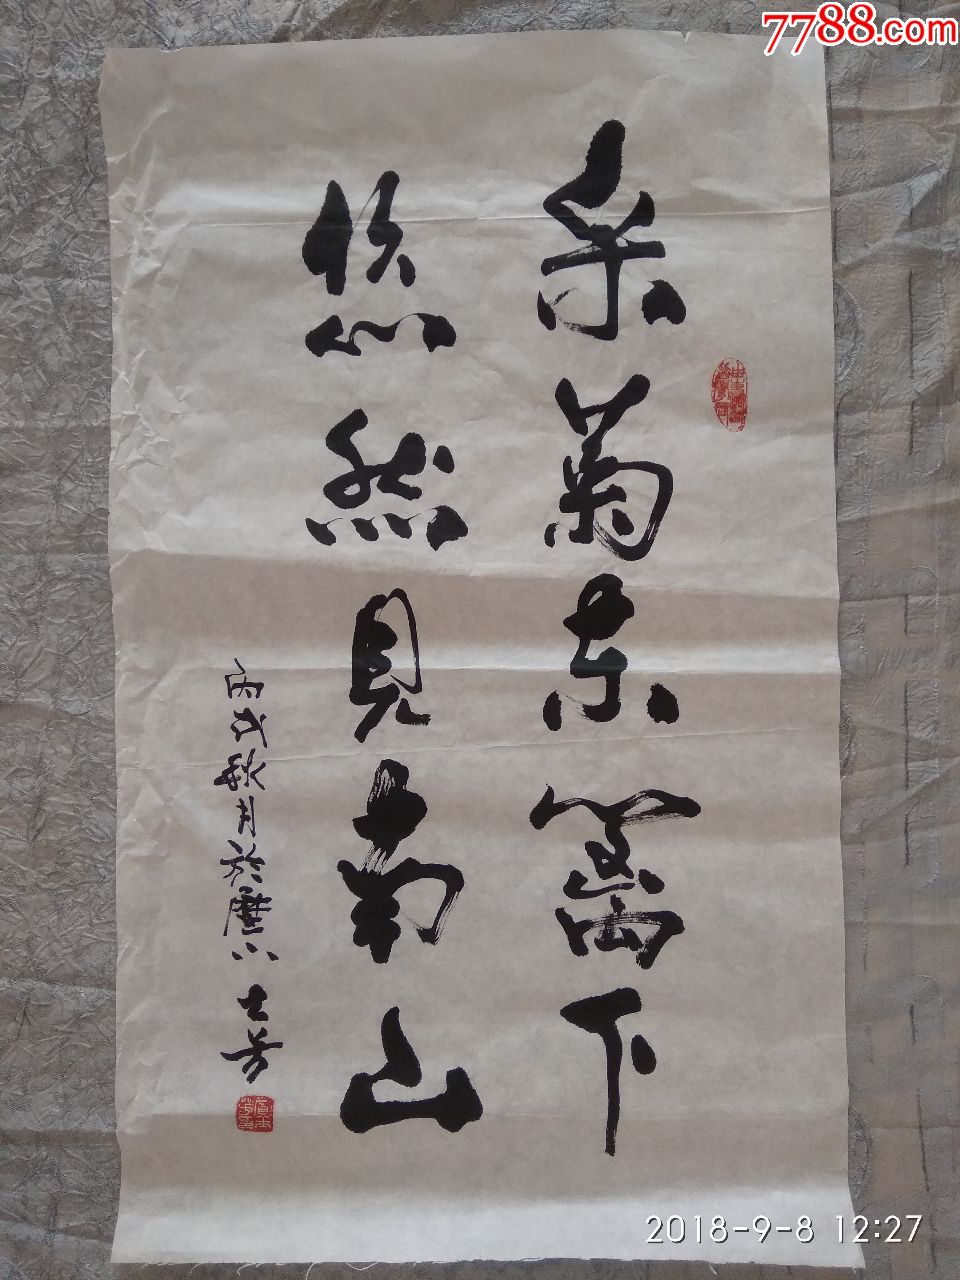 7788.com
采菊东篱下
悠然見南山
丙戌秋月於歷下 士芳
2018-9-8 12:27